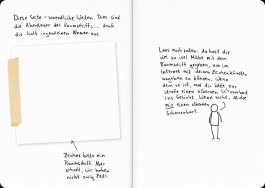 Diese Seite - unendliche Weiten. Dies sind
die Abenteuer des Raumschiffs... denk
dir halt irgendeinen Namen aus.
Zeichne bitte ein
Raumschiff. Aber
schnell, wir haben
nicht ewig Zeit.
Lass mich raten: du hast dir
viel zu viel Mühe mit dem
Raumschiff gegeben, um im
Internet mit deinen Zeichenkünsten
angeben zu können. Wenn
dem so ist, mal dir bitte zur
Strafe einen albernen Schnurrbart
ins Gesicht. Wenn nicht,
mir einen albernen
Schnurrbart.